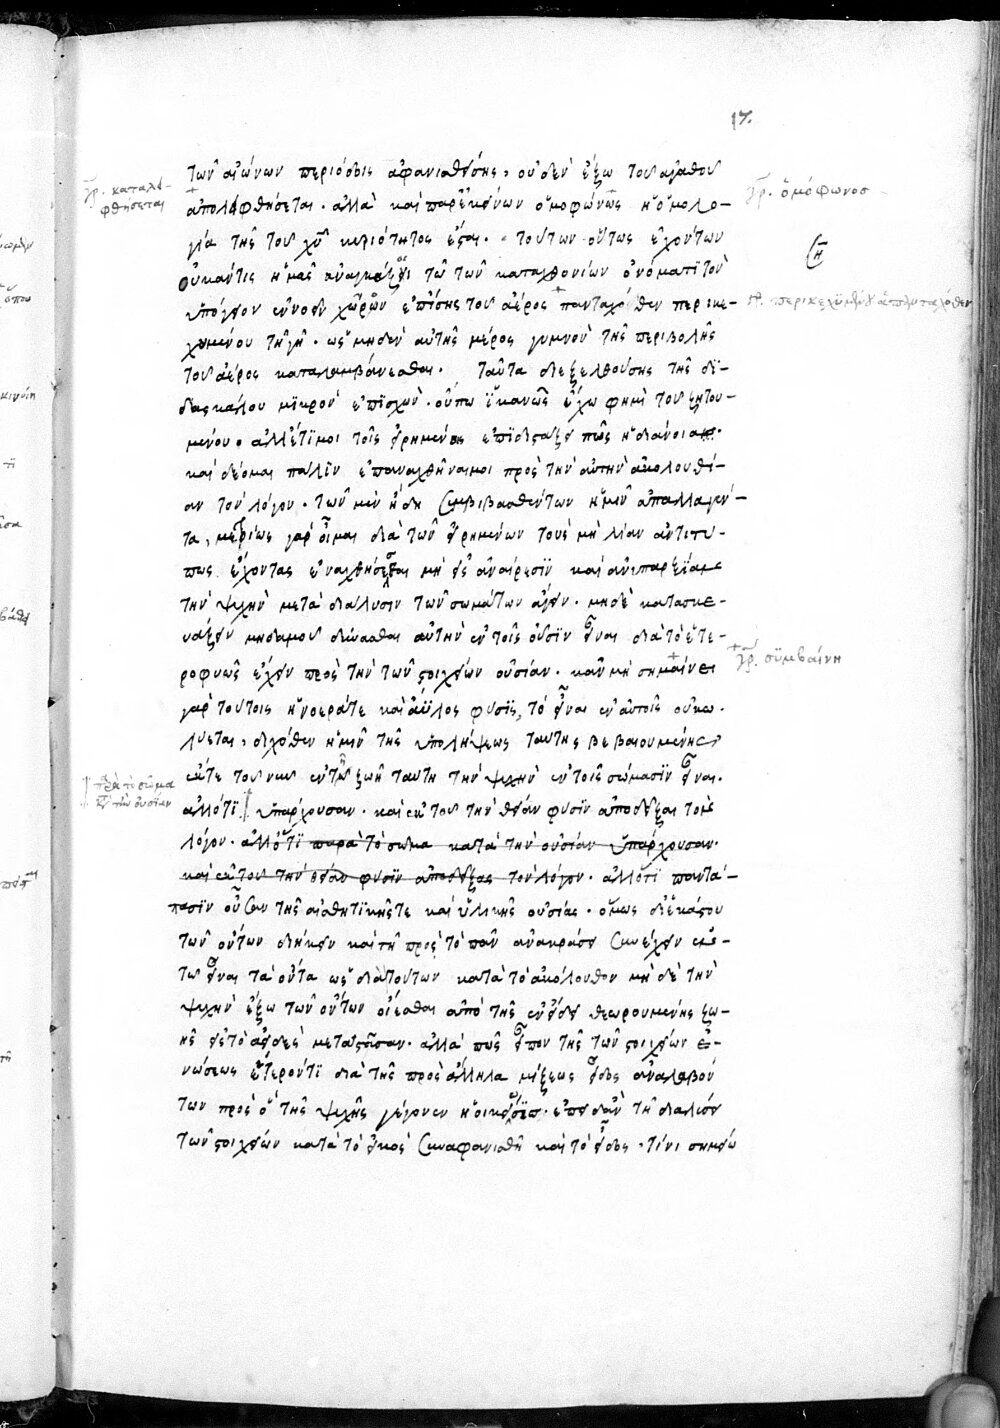 17.
τῶν αἰώνων περιόδοις ἀφανισθείσης, οὐδὲν ἔξω τοῦ ἀγαθοῦ
γρ. καταλει-
φθήσεται
ἀπολειφθήσεται. ἀλλὰ καὶ παρ' ἐκείνων ὁμοφώνως ἡ ὁμολο-
γρ. ὁμόφωνος
γία τῆς τοῦ χῦ κυριότητος ἔσται. τούτων οὕτως ἐχόντων
οὐκἄν τις ἡμᾶς ἀναγκάζοι τῶ τῶν καταχθονίων ὀνόματι τὸν
ὑπόγειον ἐννοεῖν χῶρον ἐπίσης τοῦ ἀέρος πανταχόθεν περικε-
χυμένου τῆ γῆ. ὡς μηδὲν αὐτῆς μέρος γυμνὸν τῆς περιβολῆς
τοῦ ἀέρος καταλαμβάνεσθαι. ταῦτα διεξελθούσης τῆς δι-
δασκάλου μικρὸν ἐπισχὼν. οὔπω ἱκανῶς ἔχω φημὶ τοῦ ζητου-
μένου. ἀλλ' ἔτι μοι τοῖς εἰρημένοις ἐπιδιστάζει πῶς ἡ διάνοια.
καὶ δέομαι πάλιν ἐπαναχθῆναι μοι πρὸς τὴν αὐτὴν ἀκολουθί-
αν τὸν λόγον. τῶν μὲν ἤδη συμβιβασθέντων ἡμῖν ἀπαλλαγέν-
τα, μετρίως γὰρ οἶμαι διὰ τῶν εἰρημένων τοὺς μὴ λίαν ἀντιτύ-
πως ἔχοντας ἐναχθήσεσθαι μὴ εἰς ἀναίρεσιν καὶ ἀνυπαρξίαν
τὴν ψυχὴν μετὰ διάλυσιν τῶν σωμάτων ἄγειν. μηδὲ κατασκε-
υάζειν μηδαμοῦ δύνασθαι αὐτὴν ἐν τοῖς οὖσιν εἶναι διὰ τὸ ἑτε-
ροφυῶς ἔχειν πρὸς τὴν τῶν στοιχείων οὐσίαν. κἂν μὴ σημαίνει
γρ. συμβαίνη
γὰρ τούτοις ἡ νοερά τε καὶ ἄυλος φύσις, τὸ εἶναι ἐν αὐτοῖς οὐ κω-
λύεται, διχόθεν ἡμῖν τῆς ὑπολήψεως ταύτης βεβαιουμένης
ἔκ τε τοῦ νῦν ἐν τῆ ζωῆ ταύτη τὴν ψυχὴν ἐν τοῖς σώμασιν εἶναι.
παρὰ τὸ σῶμα
κατὰ τὴν οὐσίαν
ἄλλό τι ὑπάρχουσαν. καὶ ἐκ τοῦ τὴν θείαν φύσιν ἀποδεῖξαι τὸν
λόγον. ἀλλ' ὅτι παρὰ τὸ σῶμα κατὰ τὴν οὐσίαν ὑπάρχουσαν.
καὶ ἐκ τοῦ τὴν θείαν φύσιν ἀποδείξας τὸν λόγον. ἄλλό τι παντά-
πασιν οὖσαν τῆς αἰσθητικῆς τε καὶ ὑλικῆς οὐσίας. ὅμως δι' ἑκάστου
τῶν ὄντων διήκειν καὶ τῆ πρὸς τὸ πᾶν ἀνακράσει συνέχειν ἐν
τῶ εἶναι τὰ ὄντα ὡς διὰ τούτων κατὰ τὸ ἀκόλουθον μὴ δὲ τὴν
ψυχὴν ἔξω τῶν ὄντων οἴεσθαι ἀπὸ τῆς ἐν εἴδει θεωρουμένης ζω-
ῆς εἰς τὸ ἀειδὲς μεταστᾶσαν. ἀλλὰ πῶς εἶπον τῆς τῶν στοιχείων ἑ-
νώσεως ἕτερόν τι διὰ τῆς πρὸς ἄλληλα μίξεως εἶδος ἀναλαβόν
των πρὸς ὃ τῆς ψυχῆς γέγονεν ἡ οἰκείωσις. ἐπειδὰν τῆ διαλύσει
τῶν στοιχείων κατὰ τὸ εἰκὸς συναφανισθῆ καὶ τὸ εἶδος. τίνι σημείω